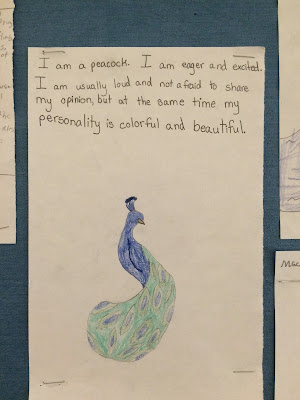 I am a peacock. I am eager and excited.
I am usually loud and not afraid to share
my opinion, but at the same time my
personality is colorful and beautiful.